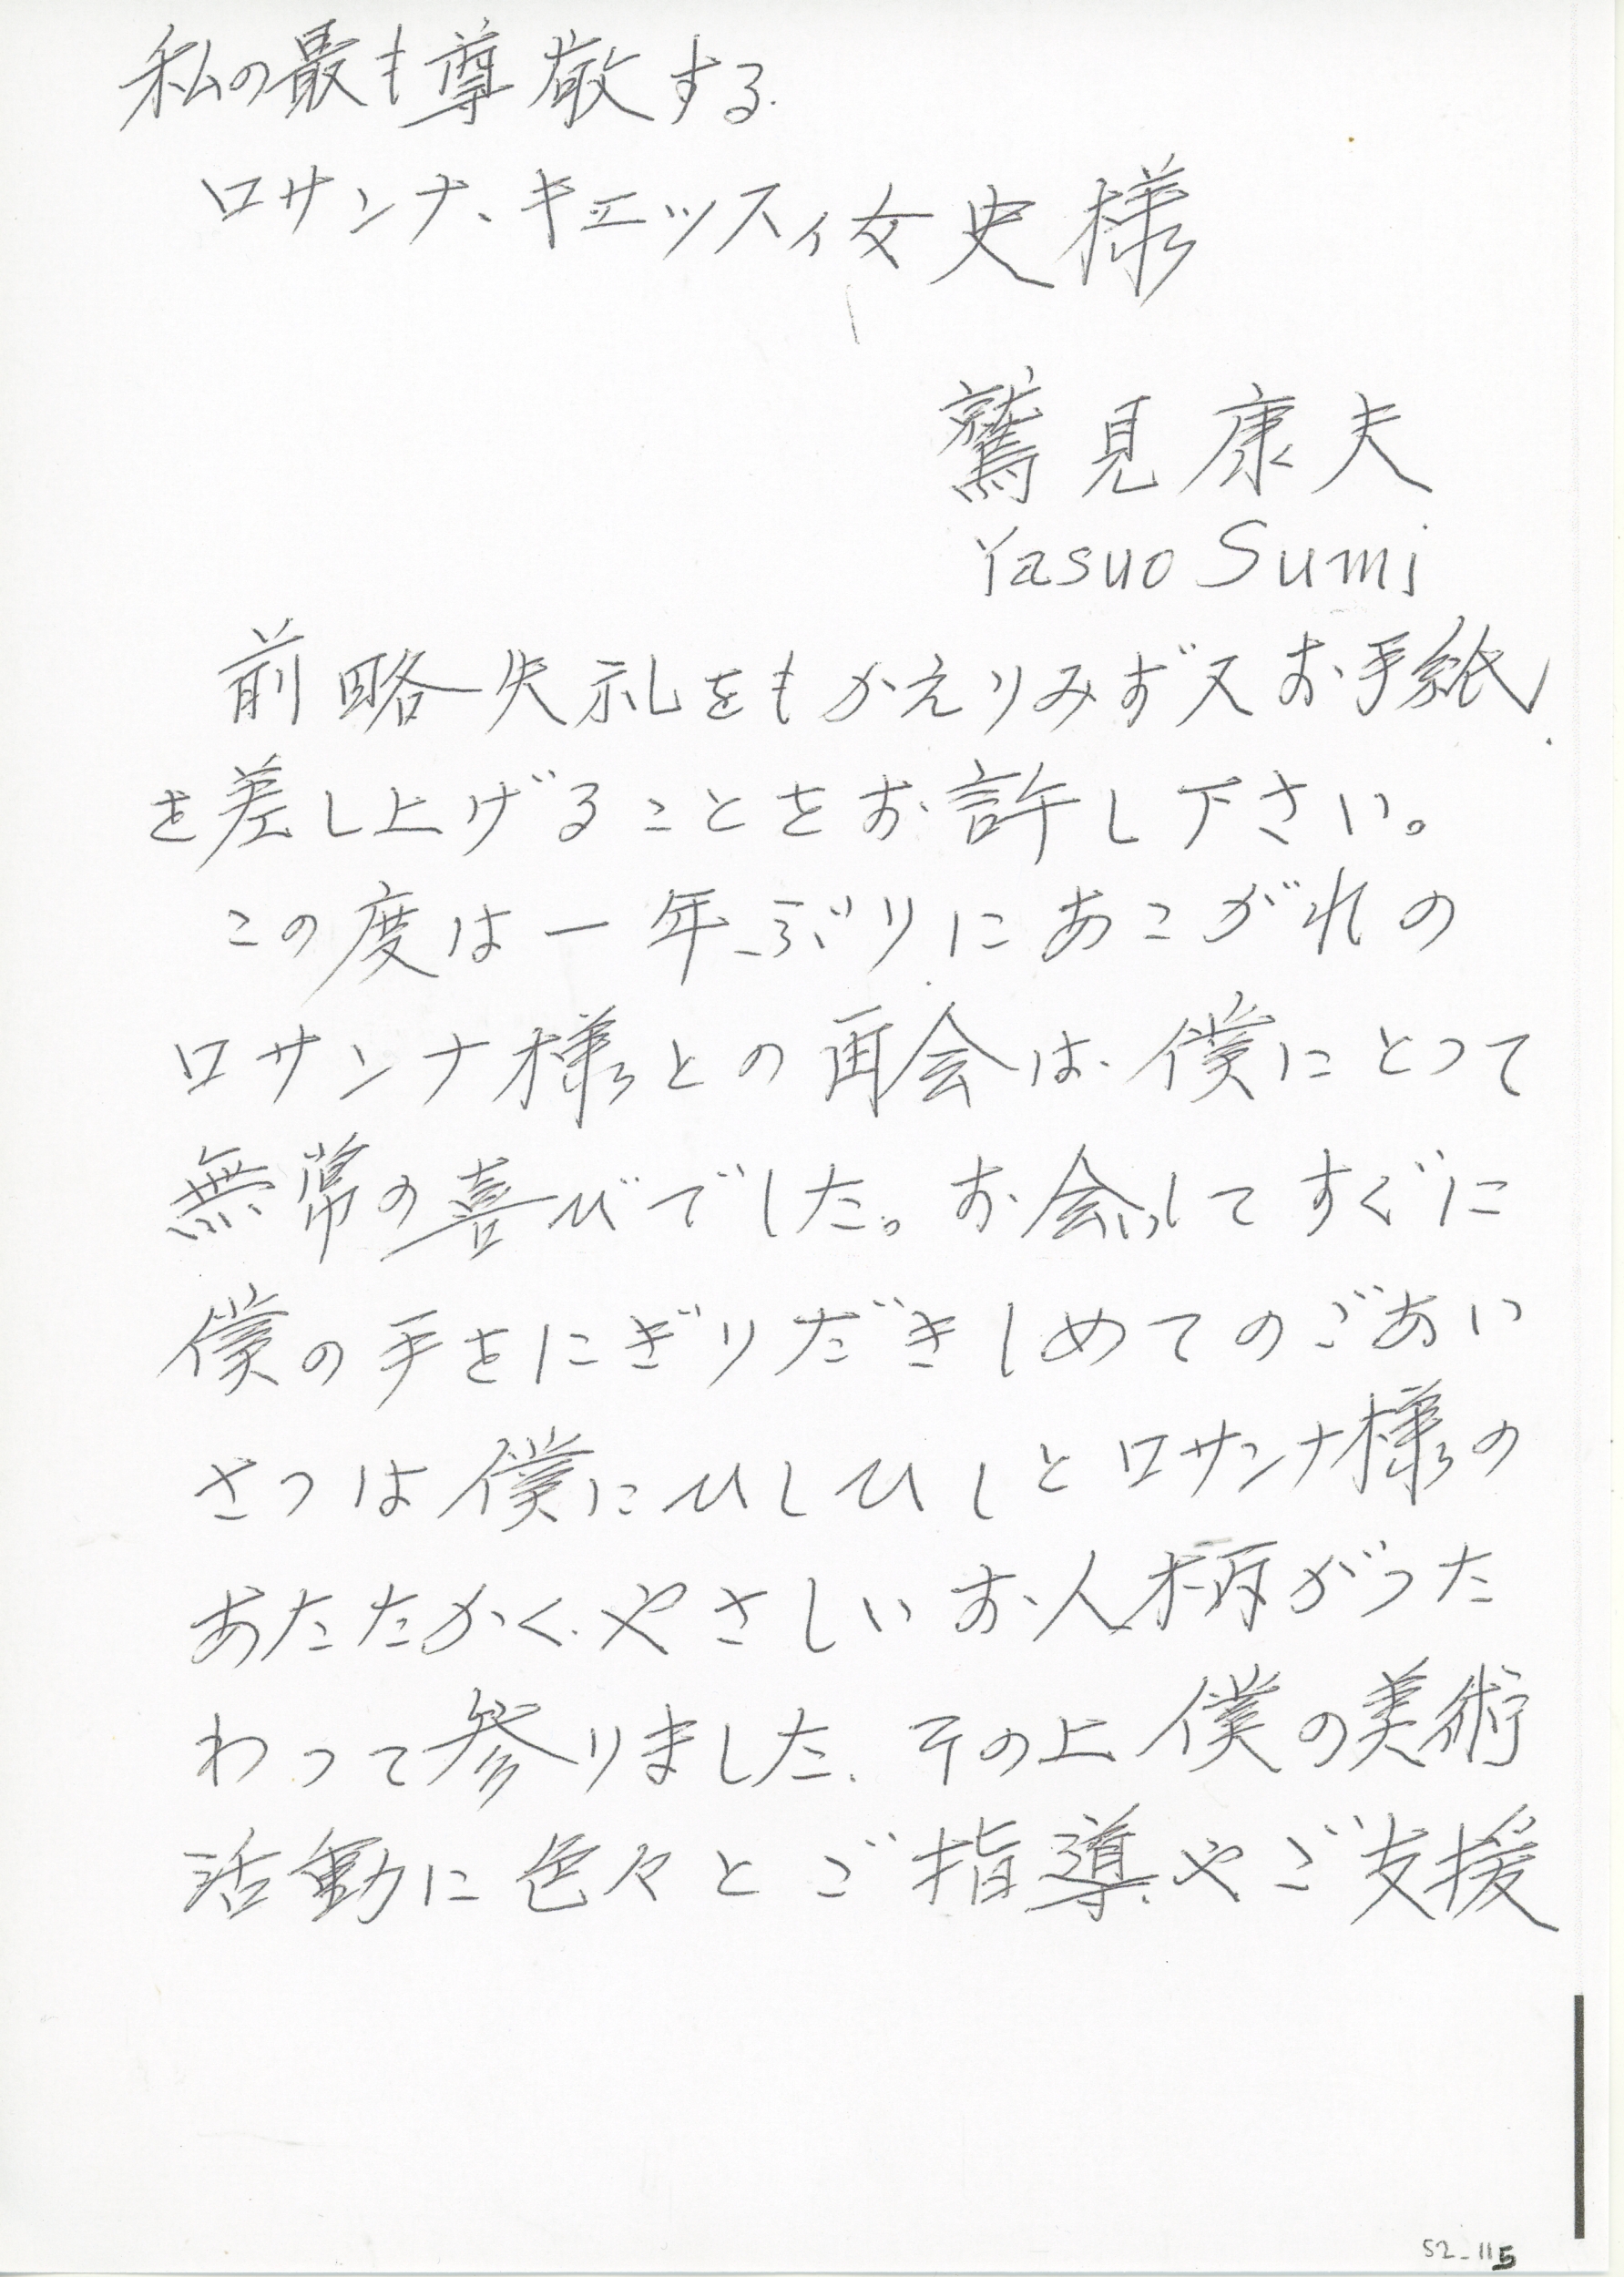 私の最も尊敬する
ロサンナ、キエッスィ女史様
鷲見康夫
Yasuo Sumi
前略失礼をもかえりみず又お手紙
を差し上げることをお許し下さい。
この度は一年ぶりにあこがれの
ロサンナ様との再会は僕にとって
無常の喜びでした。お会いしてすぐに
僕の手をにぎりだきしめてのごあい
さつは僕にひしひしとロサンナ様の
あたたかくやさしいお人柄がつた
わって参りました、その上僕の美術
活動に色々とご指導やご支援
S2_115